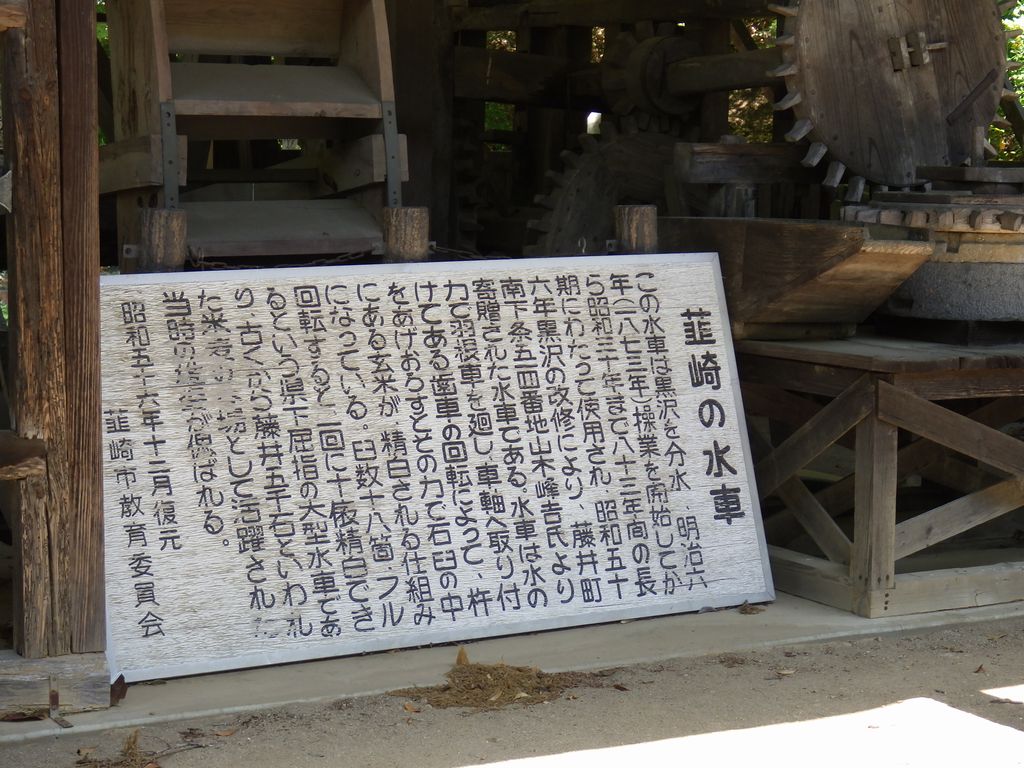 韮崎の水車
この水車は黒沢を分水、明治六
年(一八七三年)操業を開始してか
ら昭和三十年まで八十三年間の長
期にわたって使用され、昭和五十
六年黒沢の改修により、藤井町
南下条五四番地山本峰吉氏より
寄贈された水車である。水車は水の
力で羽根車を廻し、車軸へ取り付
けてある歯車の回転によって、杵
をあげおろすとその力で石臼の中
にある玄米が、精白される仕組み
になっている。臼数十八箇、フル
回転すると一回に十俵精白でき
るという県下屈指の大型水車であ
り、古くから藤井五千石といわれ
た米 の として活躍され
当時の が偲ばれる。
昭和五十六年十二月復元
韮崎市教育委員会